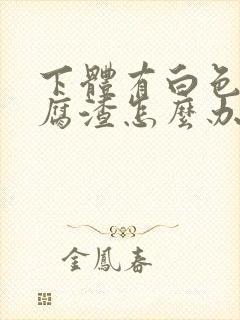 下體有白色
腐渣怎麼办
金鳳春